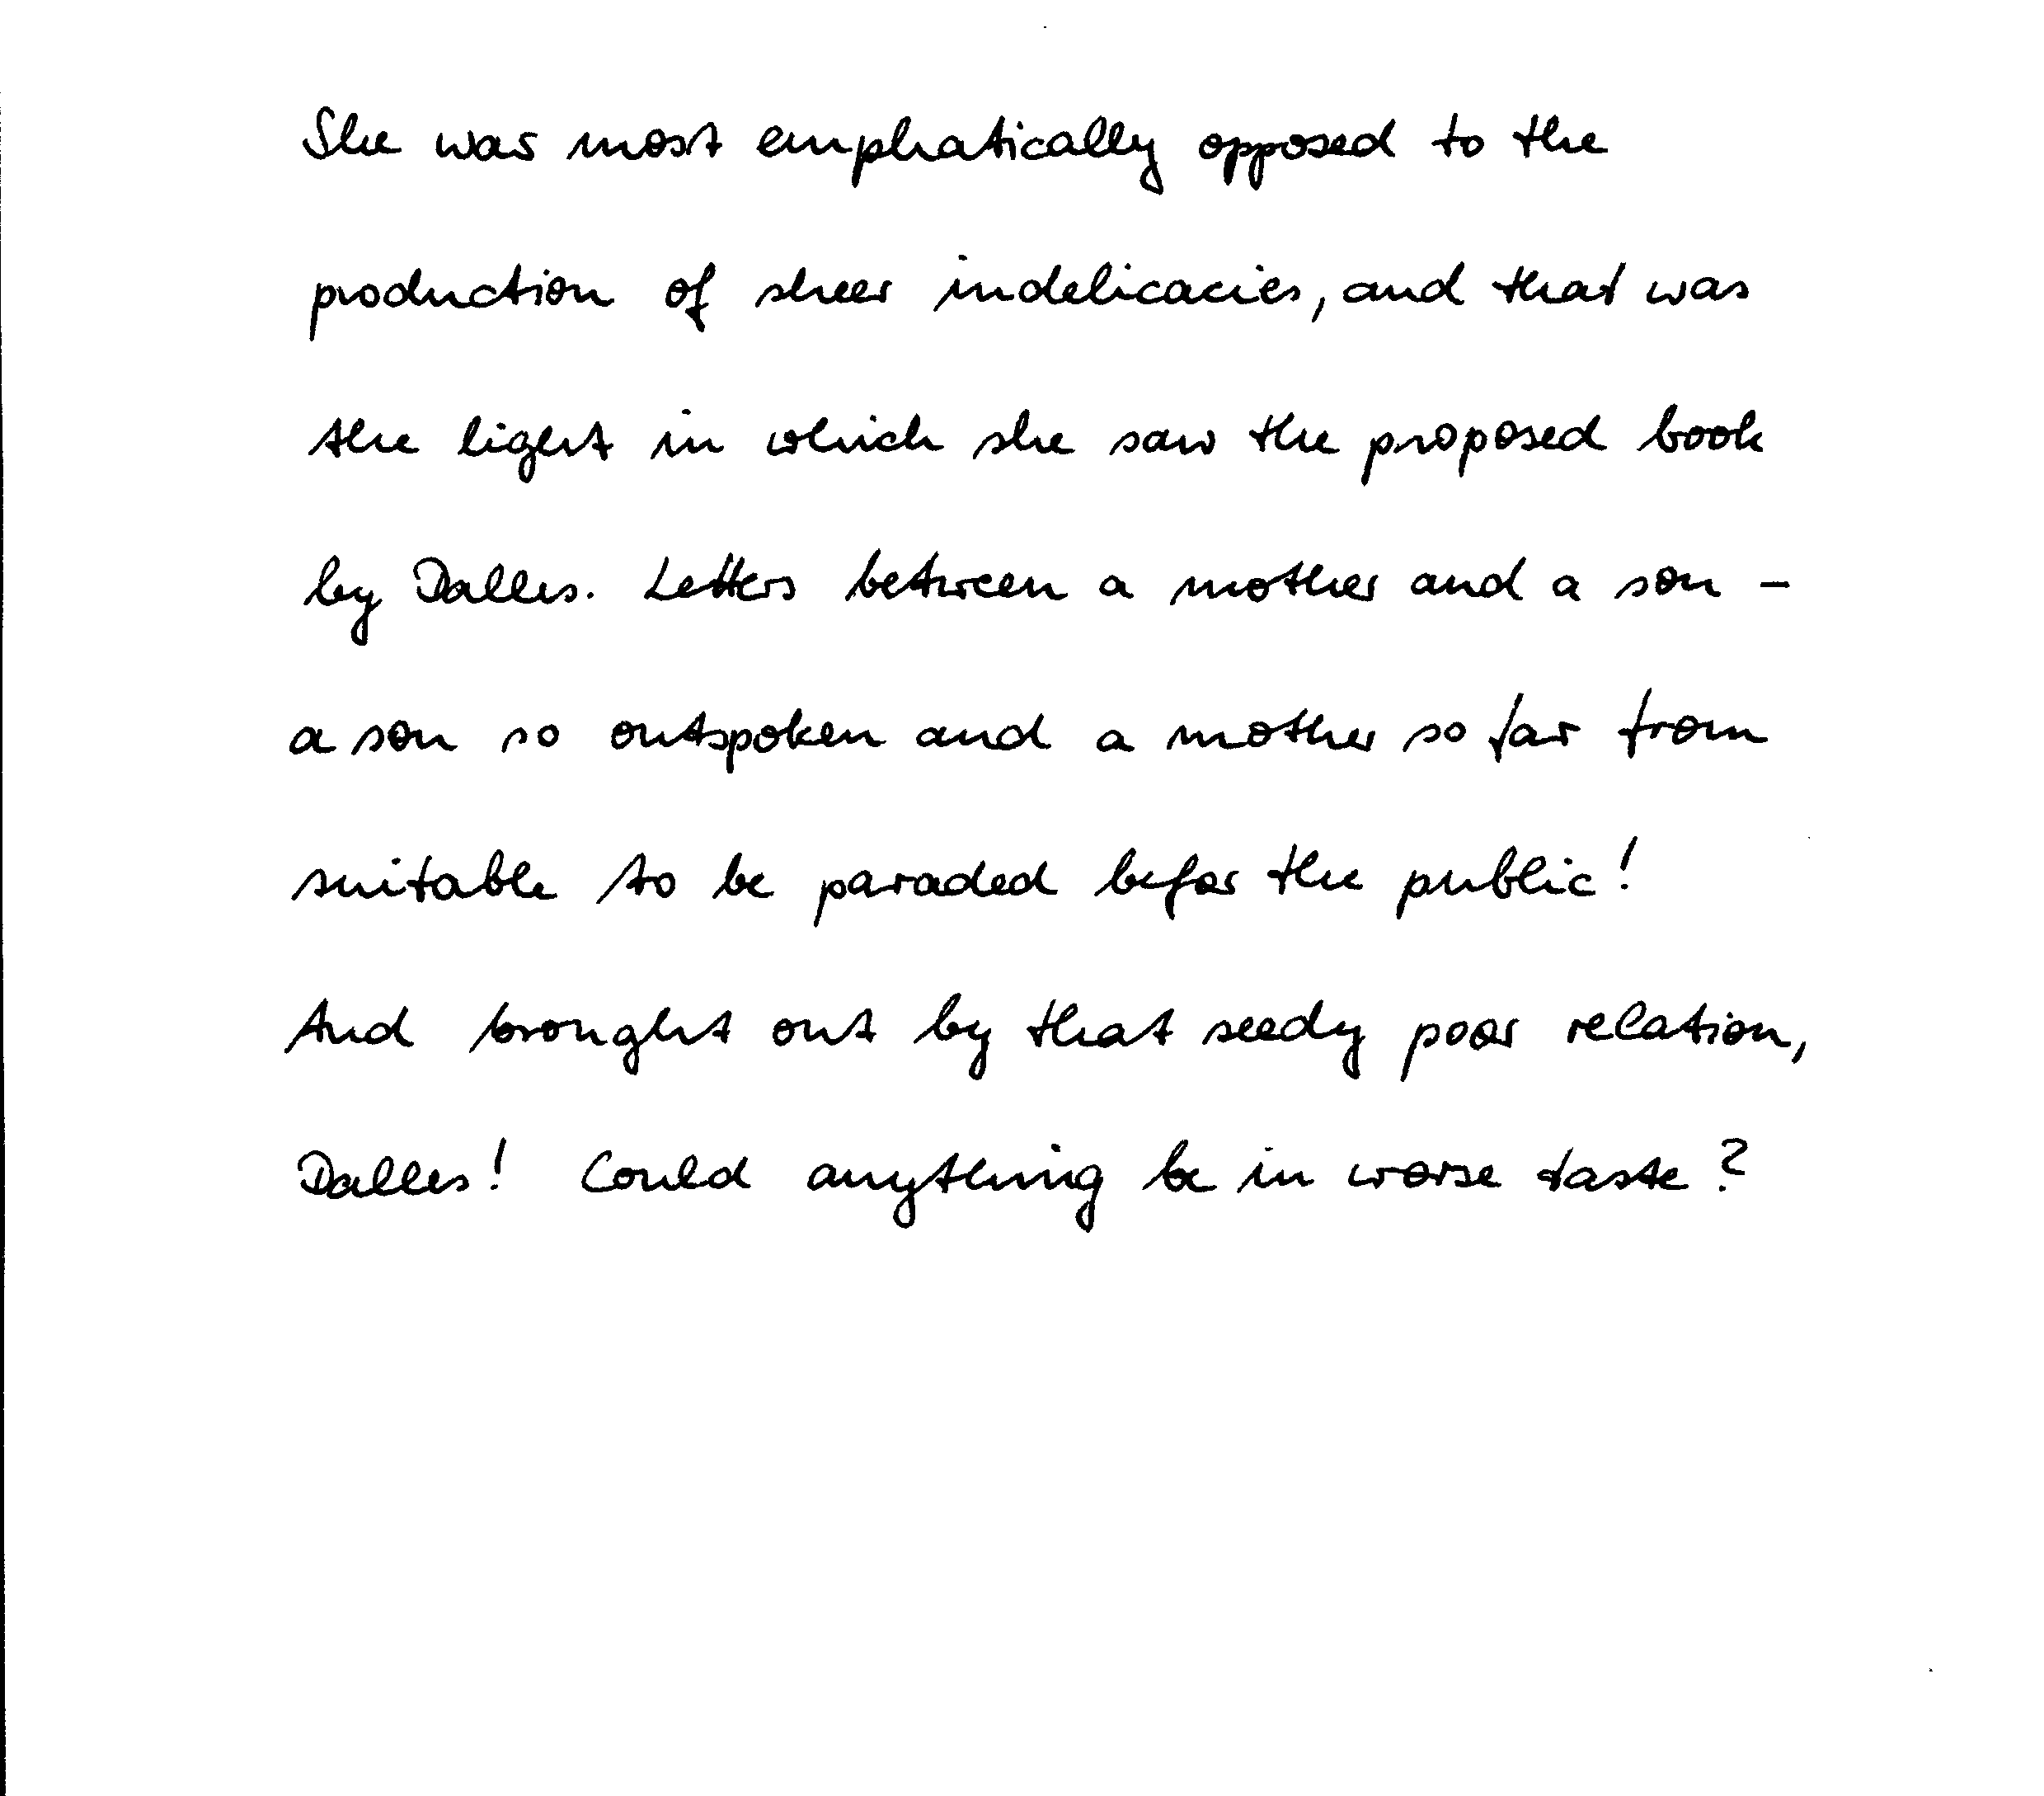 She was most emphatically opposed to the
production of sheer indelicacies, and that was
the light in which she saw the proposed book
by Dalles. Letters between a mother and a son -
a son so outspoken and a mother so far from
suitable to be paraded befor the public!
And brought out by that seedy poor relation,
Dalles! Could anything be in worse taste?